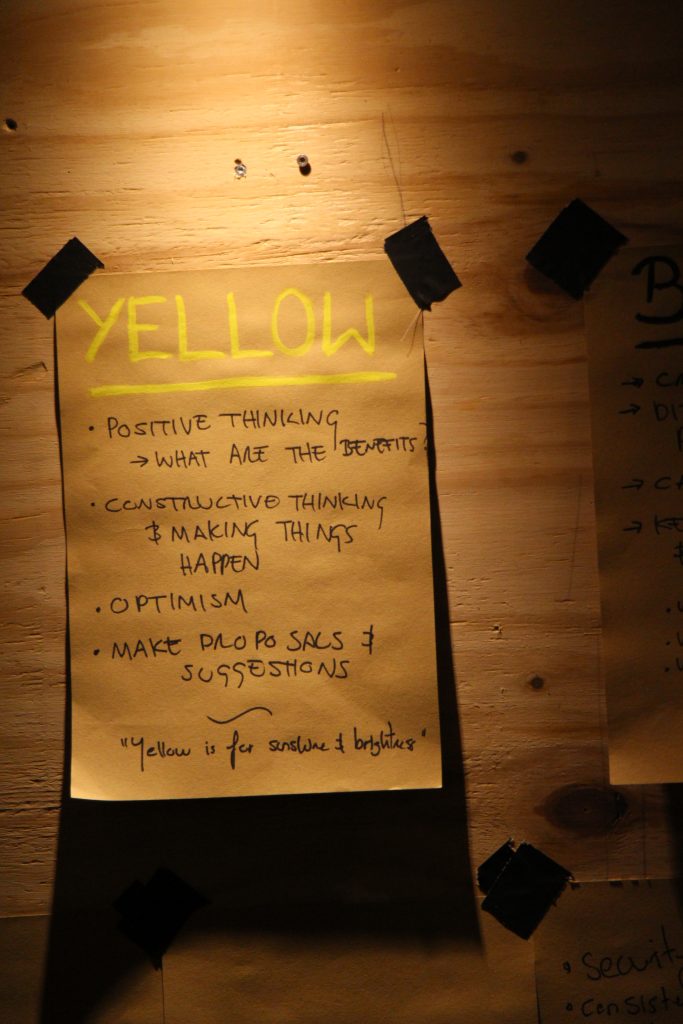 YELLOW
• POSITIVE THINKING
→ WHAT ARE THE BENEFITS?
• CONSTRUCTIVE THINKING
& MAKING THINGS
HAPPEN
• OPTIMISM
• MAKE PROPOSALS &
SUGGESTIONS
"Yellow is for sunshine & brightness"
B
→ C
→ DI
→ CA
→ KE
• Security
• consiste